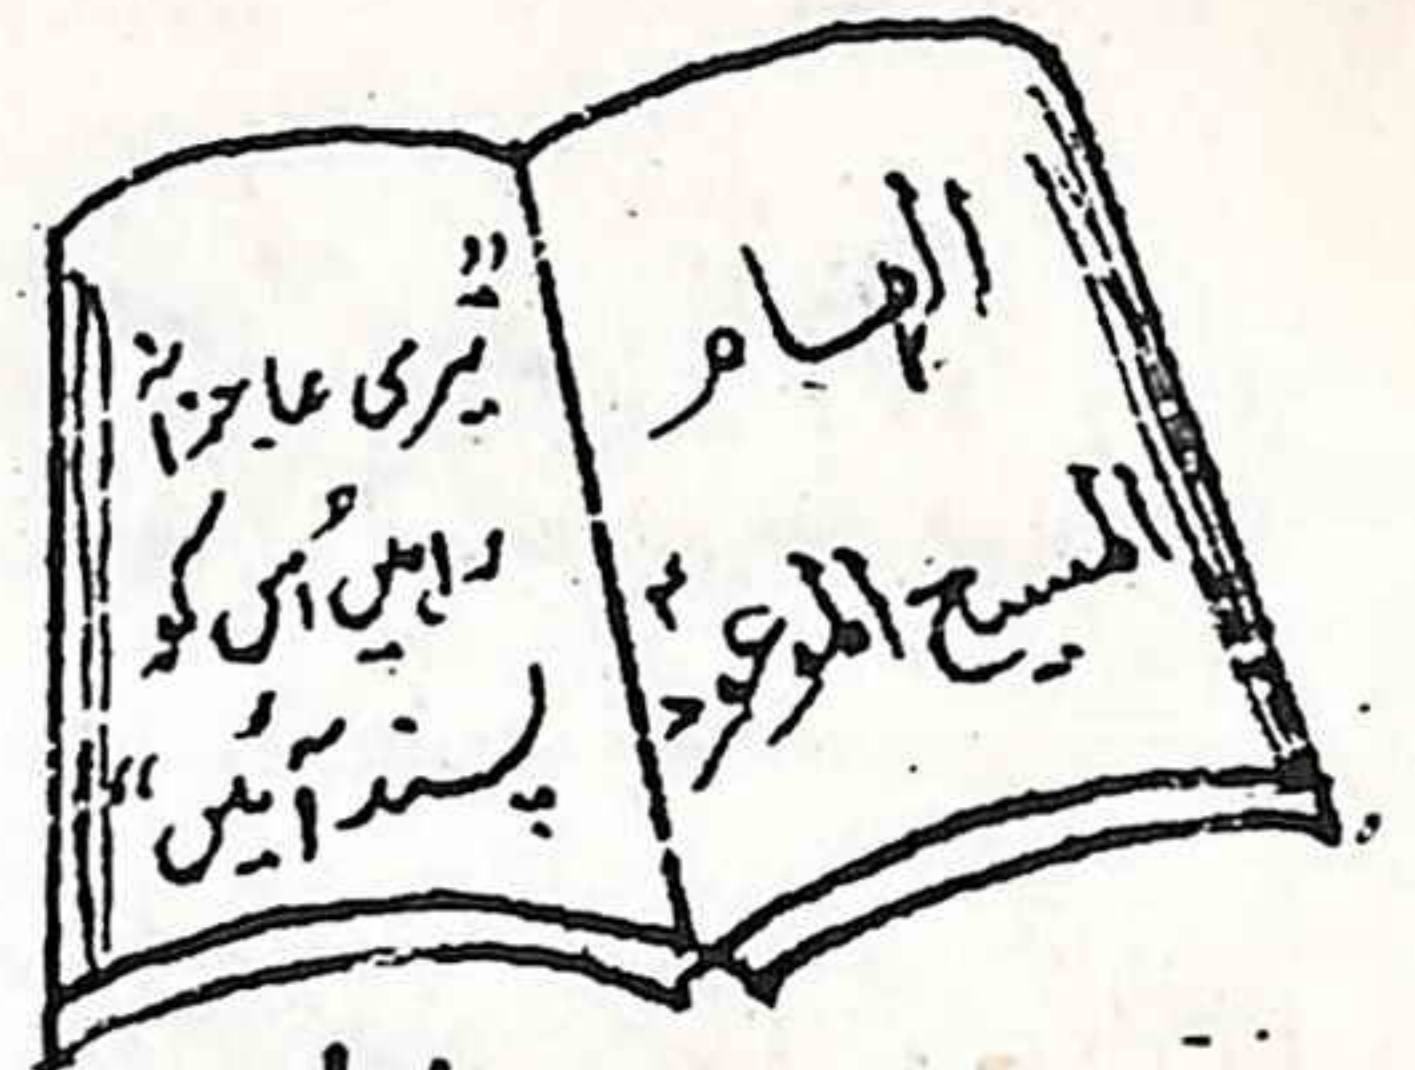 الہام
المسیح الموعودؑ
"تیری عاجزانہ
راہیں اُس کو
پسند آئیں"